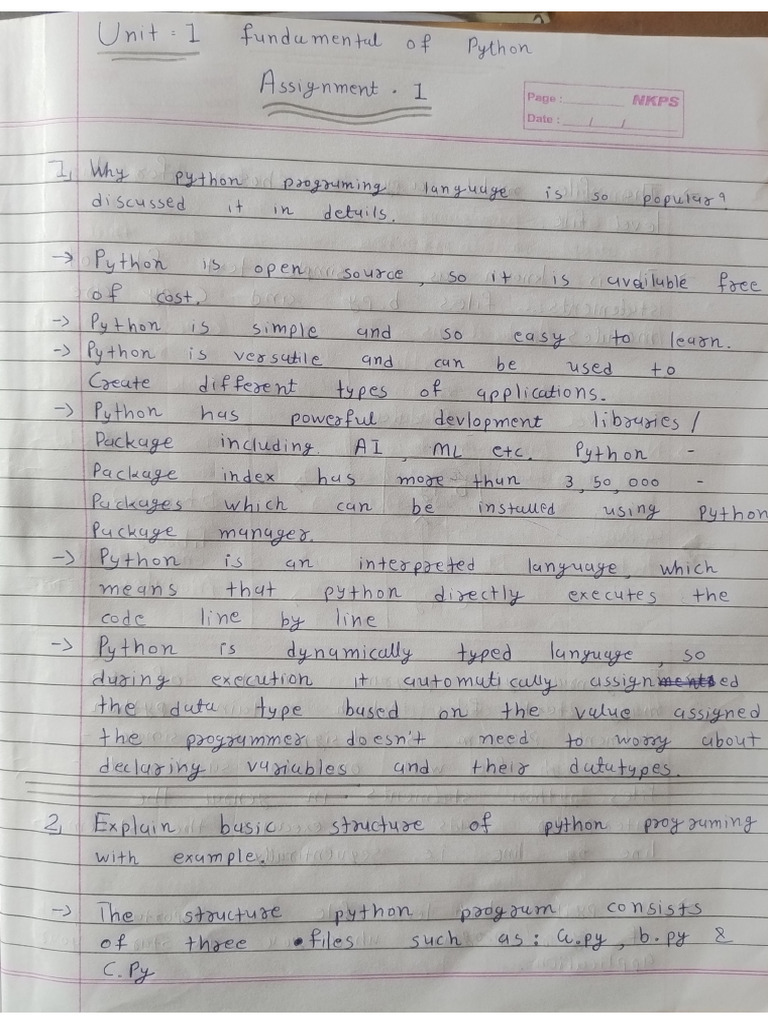 Unit : 1 Fundamental of Python
Assignment . 1
Page : NKPS
Date : / /
1, Why python programing language is so popular?
discussed it in details.
-> Python is open source, so it is available free
of cost.
-> Python is simple and so easy to learn.
-> Python is versatile and can be used to
Create different types of applications.
-> Python has powerful devlopment libraries /
Package including AI, ML etc. Python -
Package index has more than 3,50,000 -
Packages which can be installed using Python
Package manager.
-> Python is an interpreted language, which
means that python directly executes the
code line by line
-> Python is dynamically typed language, so
during execution it automatically assigned
the data type based on the value assigned
the programmer doesn't need to worry about
declaring variables and their datatypes.
2, Explain basic structure of python programing
with example.
-> The structure python program consists
of three files such as: a.py, b.py &
C.Py